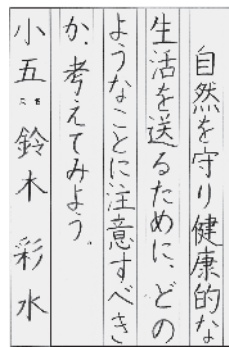 自然を守り健康的な
生活を送るために、どの
ようなことに注意すべき
か、考えてみよう。
小五 鈴木 彩水